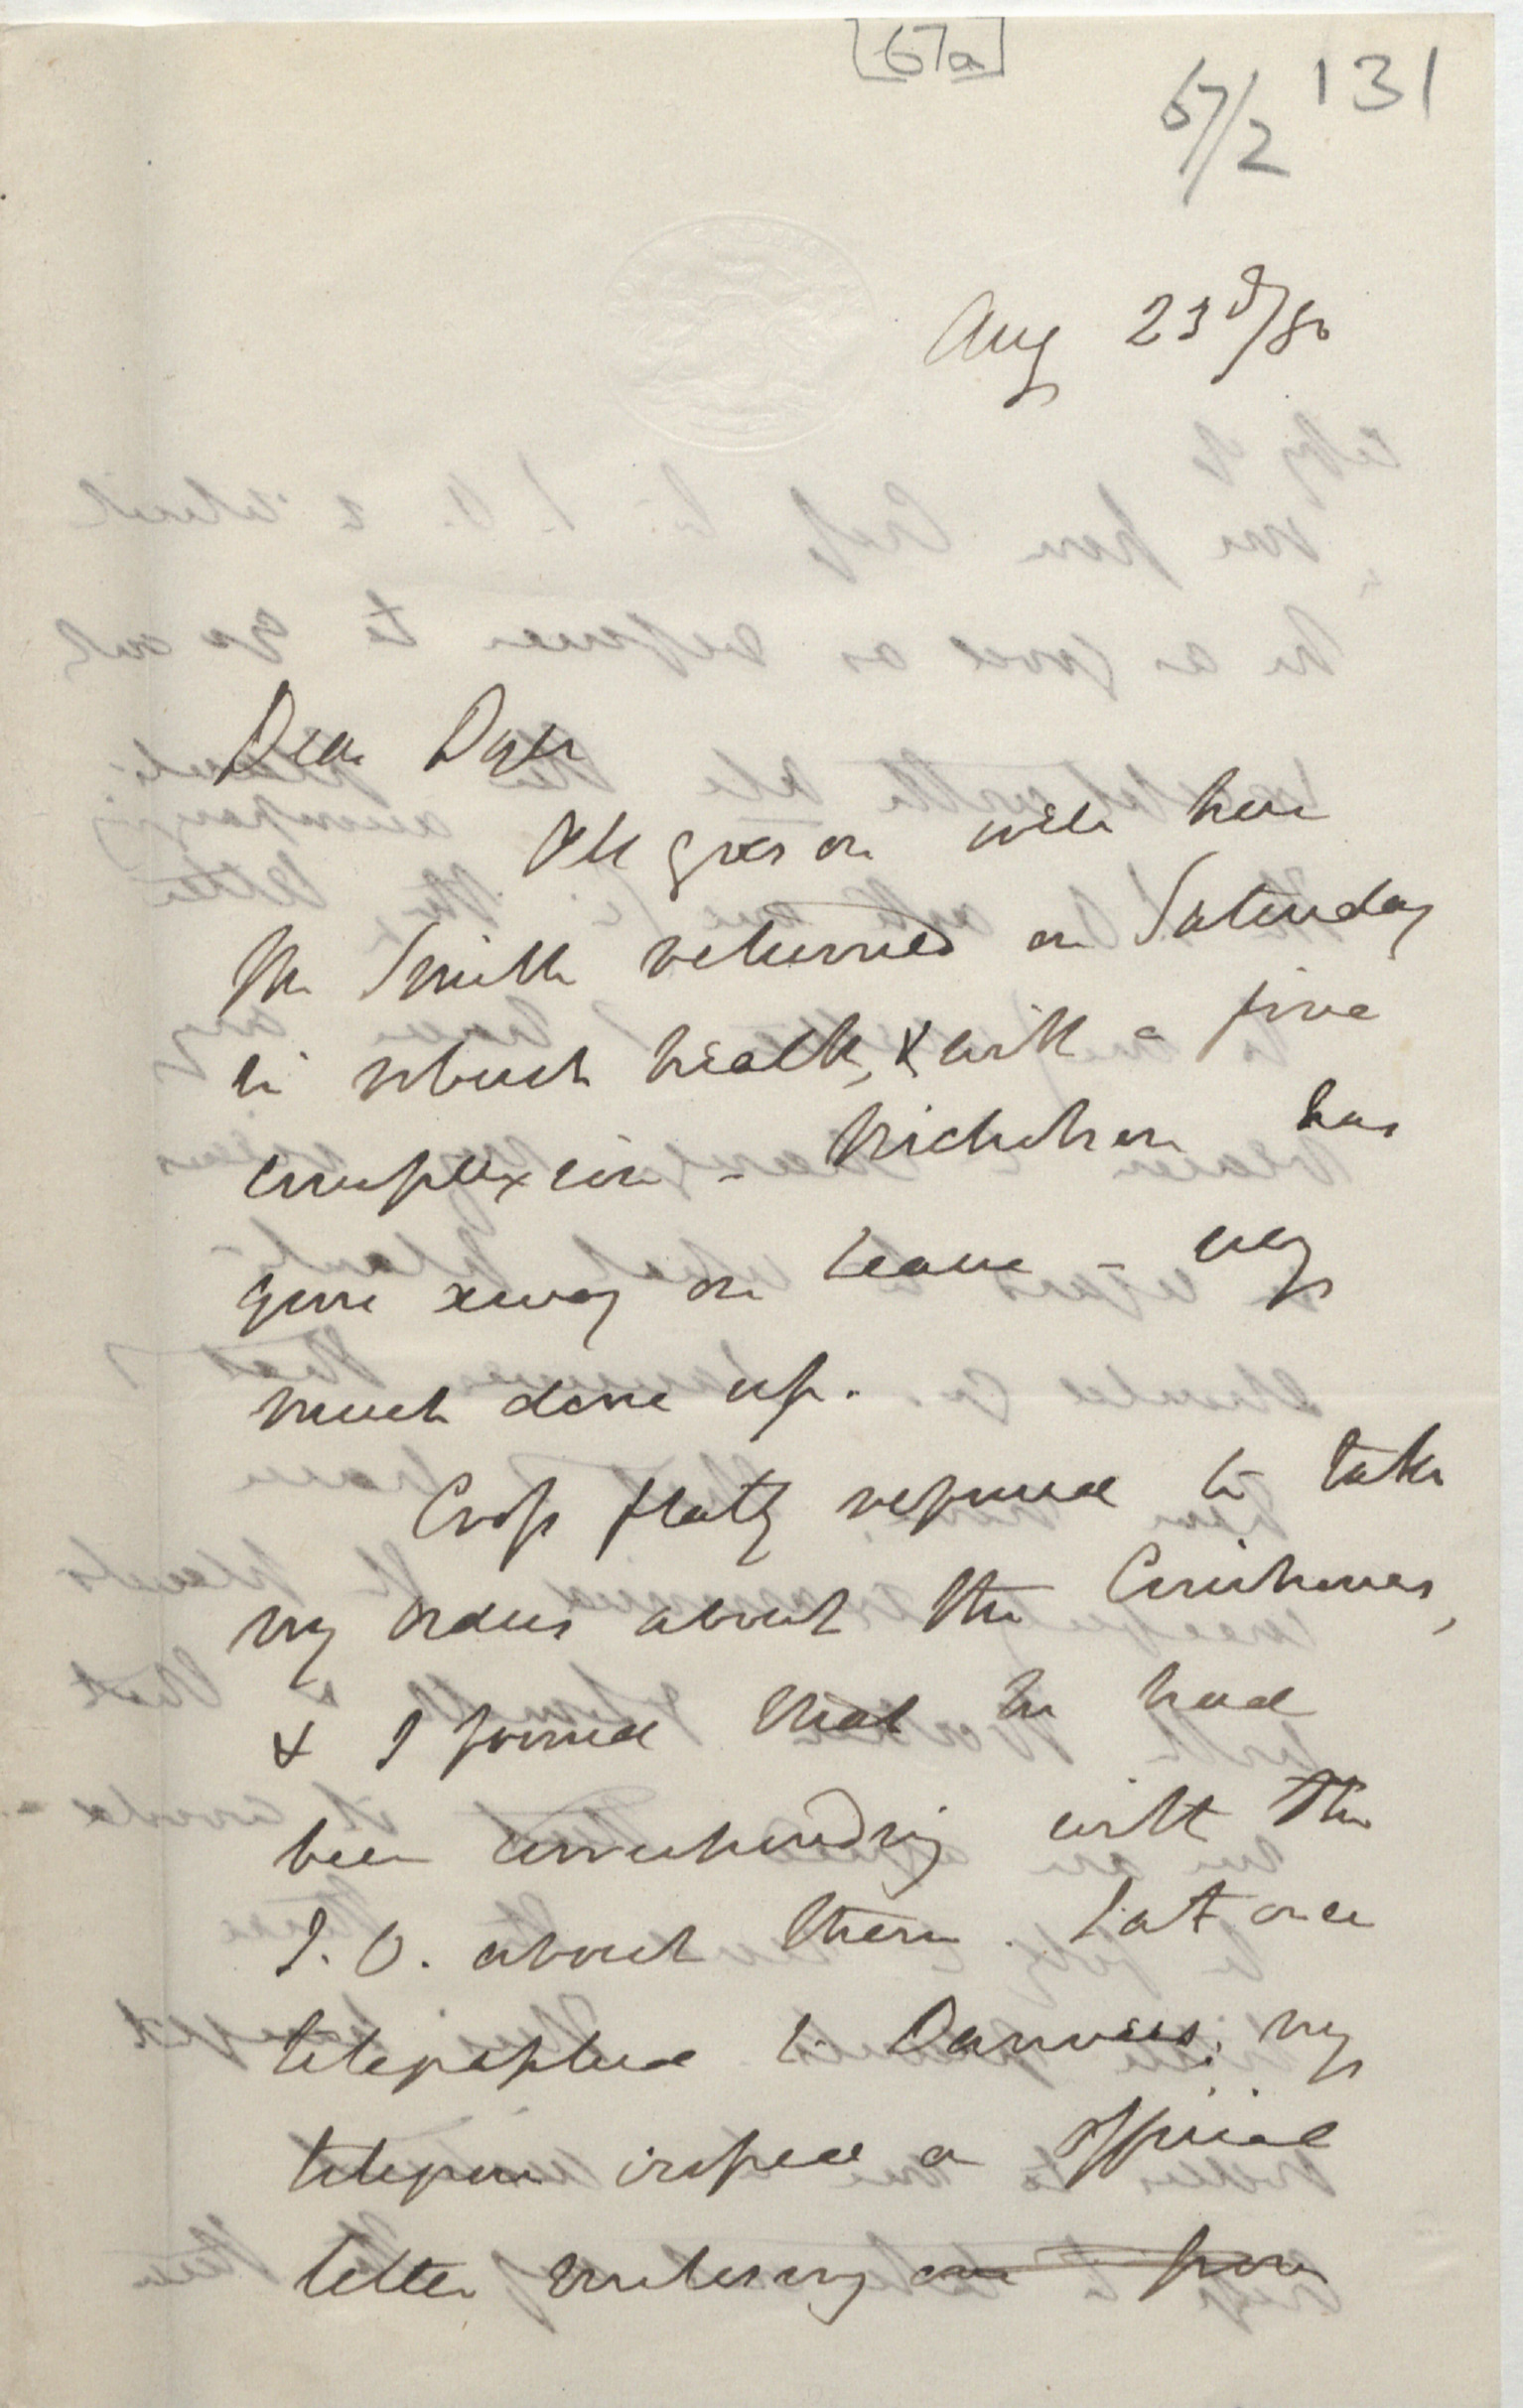 [67a]
67/2 131
Aug 23d/80
Dear Dyer
All goes on well here
Mr Smith returned on Saturday
in robust health, & with a fine
complexion - Nicholson has
gone away on leave - very
much done up.
Cross flatly refused to take
my orders about the Cinchonas,
& I found that he had
been corresponding with the
I.O. about them. I at once
telegraphed to Danvers; my
telegram crossed an official
letter enclosing one from